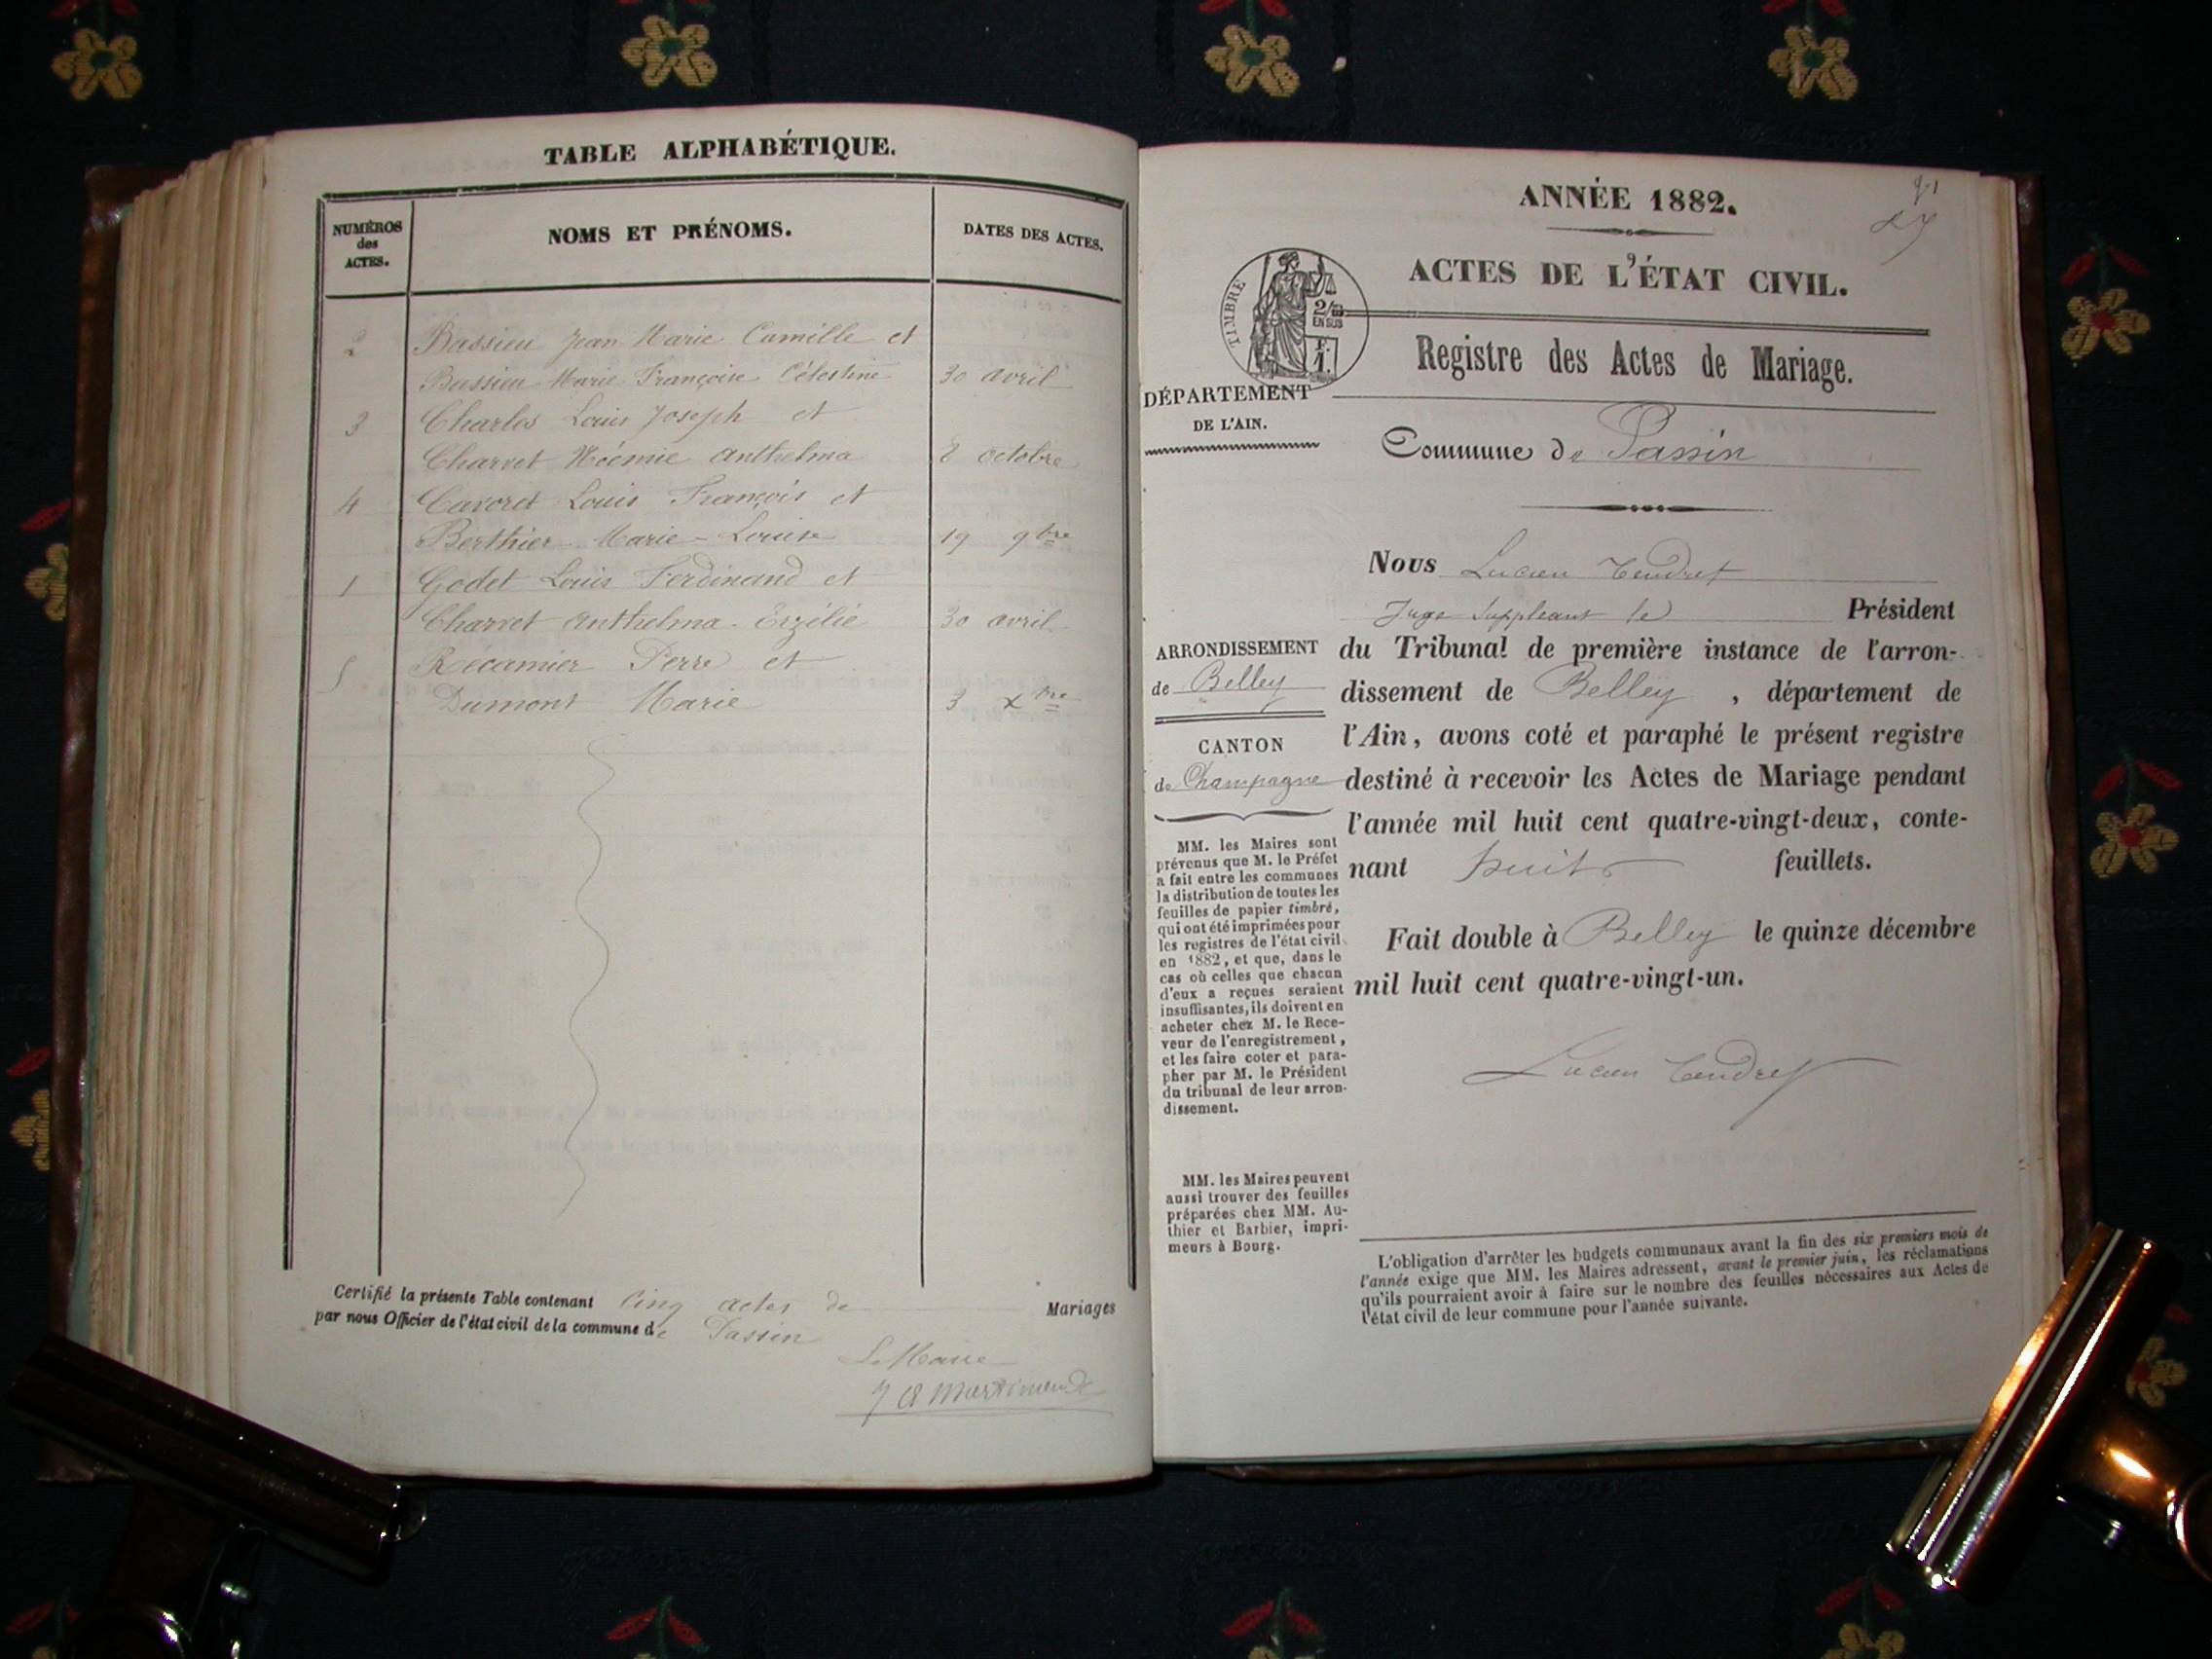 TABLE ALPHABÉTIQUE.
NUMÉROS
des
ACTES.
NOMS ET PRÉNOMS.
DATES DES ACTES.
2 Bassieu Jean Marie Camille et
Bassieu Marie Françoise Célestine 30 avril
3 Charles Louis Joseph et
Charvet Noémie Anthelma 8 octobre
4 Cavoret Louis François et
Berthier Marie-Louise 19 9bre
1 Godet Louis Ferdinand et
Charvet Anthelma-Erzélié 30 avril
5 Récamier Pierre et
Dumont Marie 3 Xbre
Certifié la présente Table contenant Cinq actes de Mariages
par nous Officier de l'état civil de la commune de Passin
Le Maire
ANNÉE 1882.
ACTES DE L'ÉTAT CIVIL.
TIMBRE
2/10
EN SUS
F.
1.
Registre des Actes de Mariage.
DÉPARTEMENT
DE L'AIN.
Commune de Passin
Nous Lucien Tendret
Juge Suppléant le Président
du Tribunal de première instance de l'arron-
dissement de Belley, département de
l'Ain, avons coté et paraphé le présent registre
destiné à recevoir les Actes de Mariage pendant
l'année mil huit cent quatre-vingt-deux, conte-
nant huit feuillets.
Fait double à Belley le quinze décembre
mil huit cent quatre-vingt-un.
Lucien Tendret
ARRONDISSEMENT
de Belley
CANTON
de Champagne
MM. les Maires sont
prévenus que M. le Préfet
a fait entre les communes
la distribution de toutes les
feuilles de papier timbré,
qui ont été imprimées pour
les registres de l'état civil
en 1882, et que, dans le
cas où celles que chacun
d'eux a reçues seraient
insuffisantes, ils doivent en
acheter chez M. le Rece-
veur de l'enregistrement,
et les faire coter et para-
pher par M. le Président
du tribunal de leur arron-
dissement.
MM. les Maires peuvent
aussi trouver des feuilles
préparées chez MM. Au-
thier et Barbier, impri-
meurs à Bourg.
L'obligation d'arrêter les budgets communaux avant la fin des six premiers mois de
l'année exige que MM. les Maires adressent, avant le premier juin, les réclamations
qu'ils pourraient avoir à faire sur le nombre des feuilles nécessaires aux Actes de
l'état civil de leur commune pour l'année suivante.